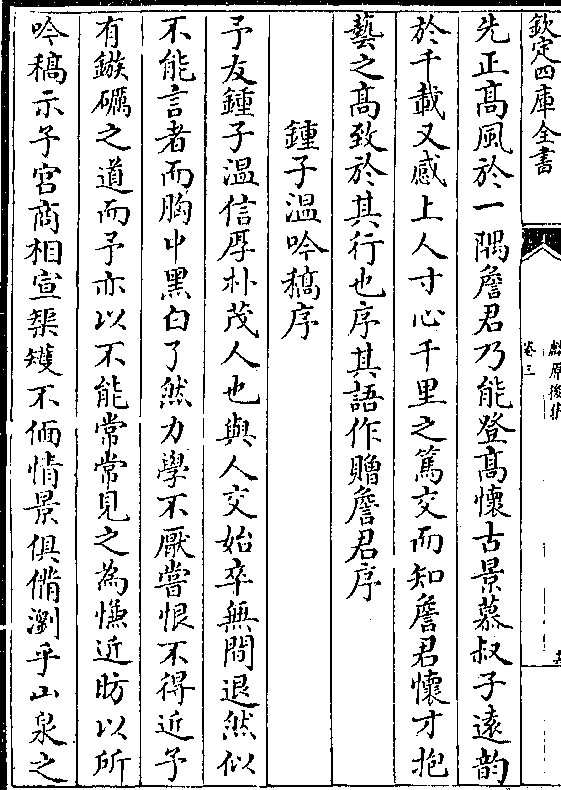 欽定四庫全書
卷三
先正髙風於一隅詹君乃能登髙懷古景慕叔子遠韵
於千載又感上人寸心千里之篤交而知詹君懷才抱
藝之髙致於其行也序其語作贈詹君序
鍾子温吟稿序
予友鍾子温信厚朴茂人也與人交始卒無間退然似
不能言者而胸中黑白了然力學不厭嘗恨不得近予
有鏃礪之道而予亦以不能常常見之為慊近昉以所
吟稿示予宮商相宣榘矱不偭情景俱備瀏乎山泉之